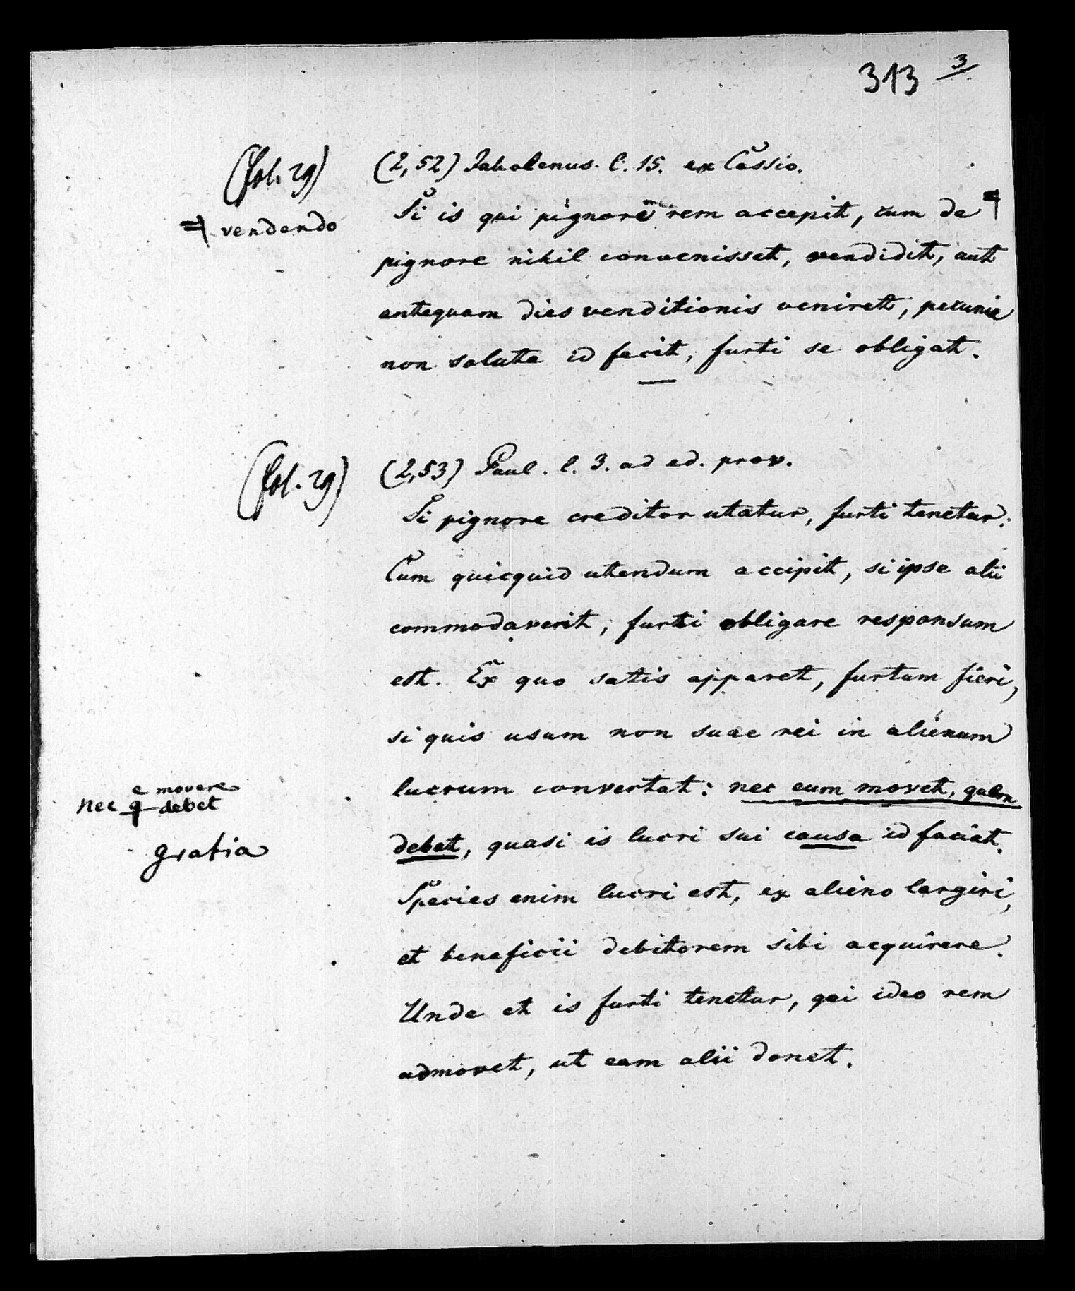 313 3
(fol. 29) (2,52) Jabolenus. l. 15. ex Cassio.
Si is qui pignori rem accepit, cum de
vendendo
pignore nihil convenisset, vendidit, aut
antequam dies venditionis veniret, pecunia
non soluta id fecit, furti se obligat.
(fol. 29) (2,53) Paul. l. 3. ad ed. prov.
Si pignore creditor utatur, furti tenetur.
Cum quicquid utendum accipit, si ipse alii
commodaverit, furti obligare responsum
est. Ex quo satis apparet, furtum fieri,
si quis usum non suae rei in alienum
lucrum convertat: nec eum movet, quem
e movere
nec q debet
debet, quasi is lucri sui causa id faciat.
gratia
Species enim lucri est, ex alieno largiri,
et beneficii debitorem sibi acquirere.
Unde et is furti tenetur, qui ideo rem
admovet, ut eam alii donet.